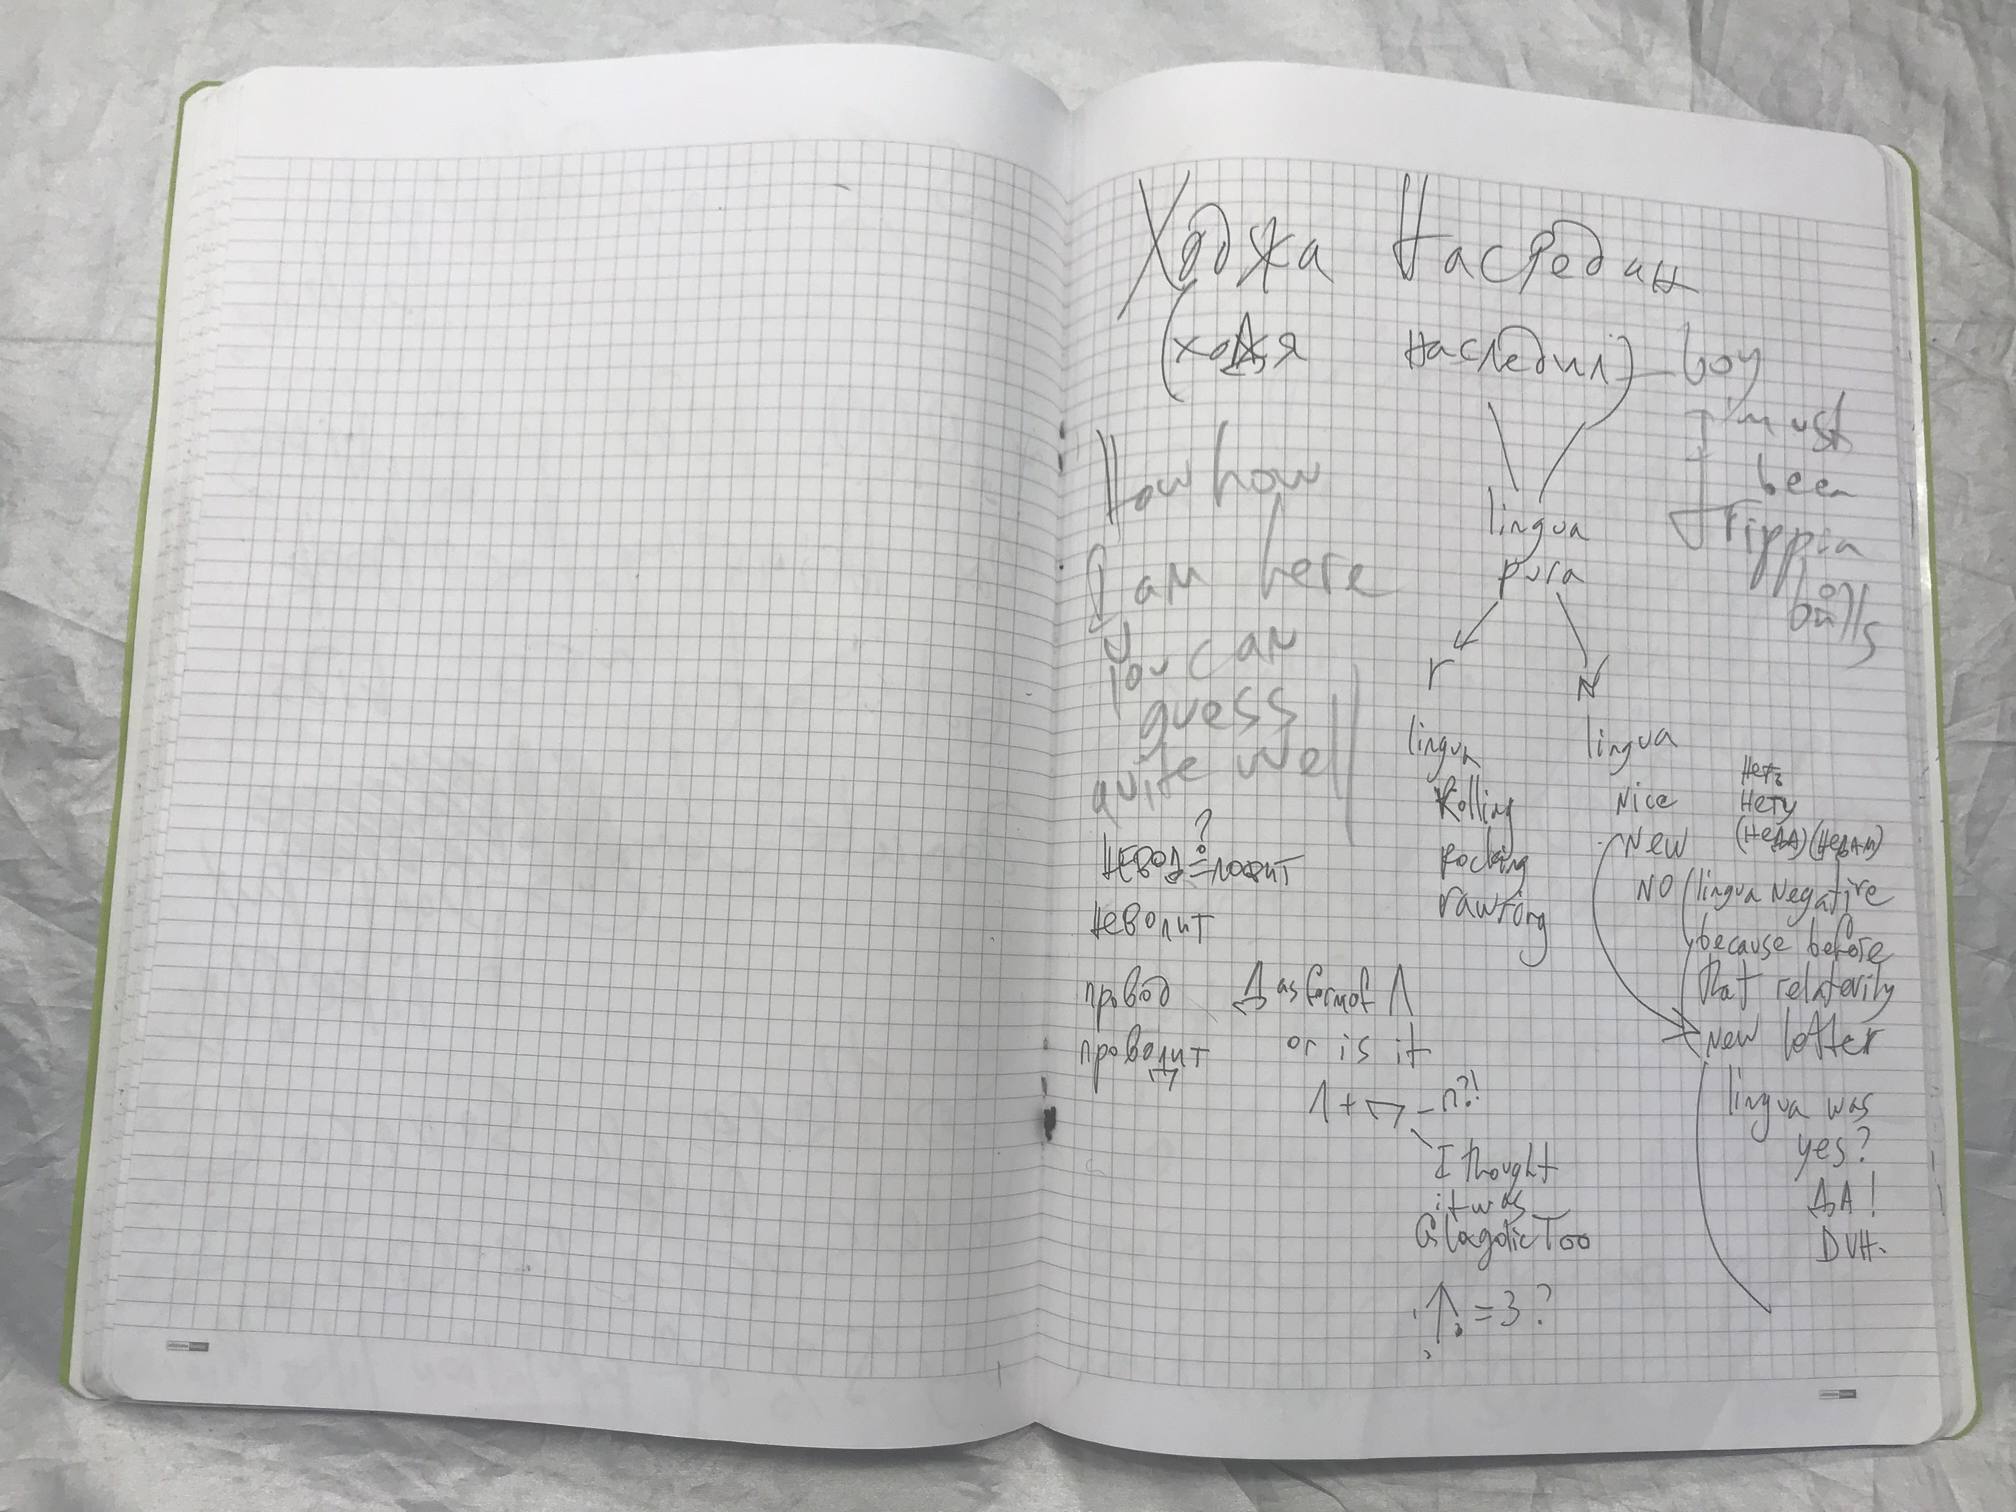 Ходжа Насредин
(ходя наследил) boy
I must
been
Trippin
balls
How how
I am here
U
You can
guess
quite well
lingua
pura
r N
lingua
Rolling
Rocking
rawrong
lingua
Nice
New
NO
Неть
Нету
(НеДА) (НеДАМ)
(lingua Negative
because before
that relaterily
New lotter
lingua was
yes?
ДА!
DVH.
?
НЕВОД = ловит
Неволит
провод
проводит
Д as form of Λ
or is it
Λ + - n?!
I thought
it was
Glagolic Too
↑ = 3 ?